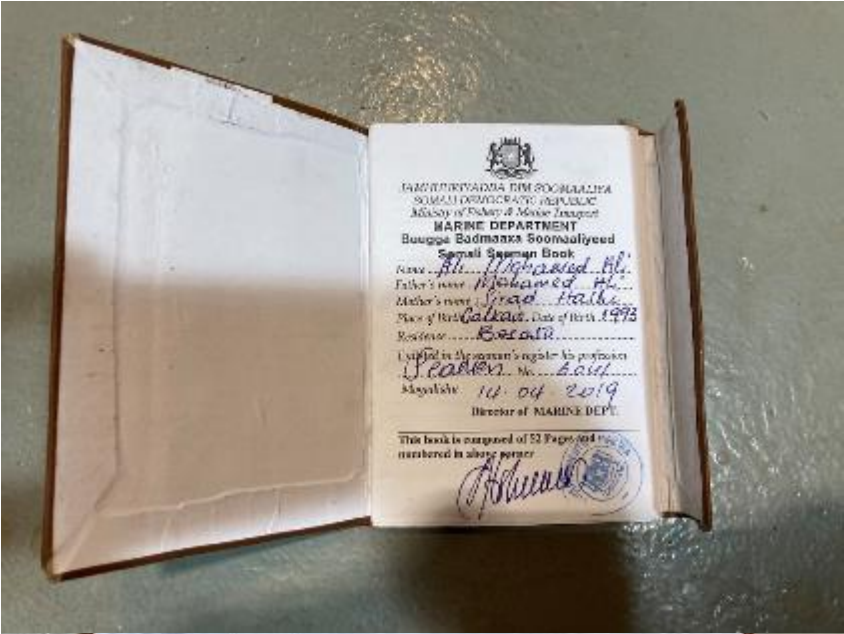 JAMHUURIYADDA DIM SOOMAALIYA
SOMALI DEMOCRATIC REPUBLIC
Ministry of Fishery & Marine Transport
MARINE DEPARTMENT
Buugga Badmaaxa Soomaaliyeed
Somali Seaman Book
Name Ali Mohamed Ali
Father's name Mohamed Ali
Mother's name
Place of Birth Galkao Date of Birth 1993
Residence Bosaso
in the seaman's register his profession
Seamen No.
Mogadisho 14.04.2019
Director of MARINE DEPT.
This book is composed of 52 Pages and
numbered in above corner